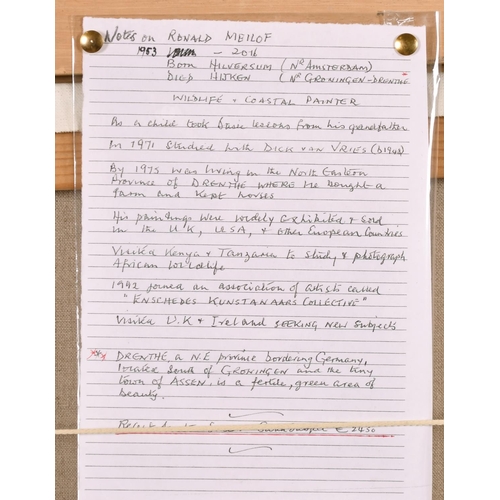 Notes on RONALD MEILOF
1953 - 2016
BORN HILVERSUM (NR AMSTERDAM)
DIED HIJKEN (NR GRONINGEN-DRENTHE
WILDLIFE & COASTAL PAINTER
As a child took basic lessons from his grandfather
In 1971 studied with DICK van VRIES (b1943)
By 1975 was living in the North Eastern
Province of DRENTHE WHERE he bought a
farm and kept horses
His paintings were widely exhibited & sold
in the U.K, USA, & other European Countries
Visited Kenya & Tanzania to study, & photograph
African wildlife
1992 joined an association of artists called
"ENSCHEDES KUNSTANAARS COLLECTIVE"
Visited U.K & Ireland SEEKING NEW Subjects
DRENTHE, a N.E province bordering Germany,
located South of GRONINGEN and the tiny
town of ASSEN. is a fertile, green area of
beauty.
€ 2450